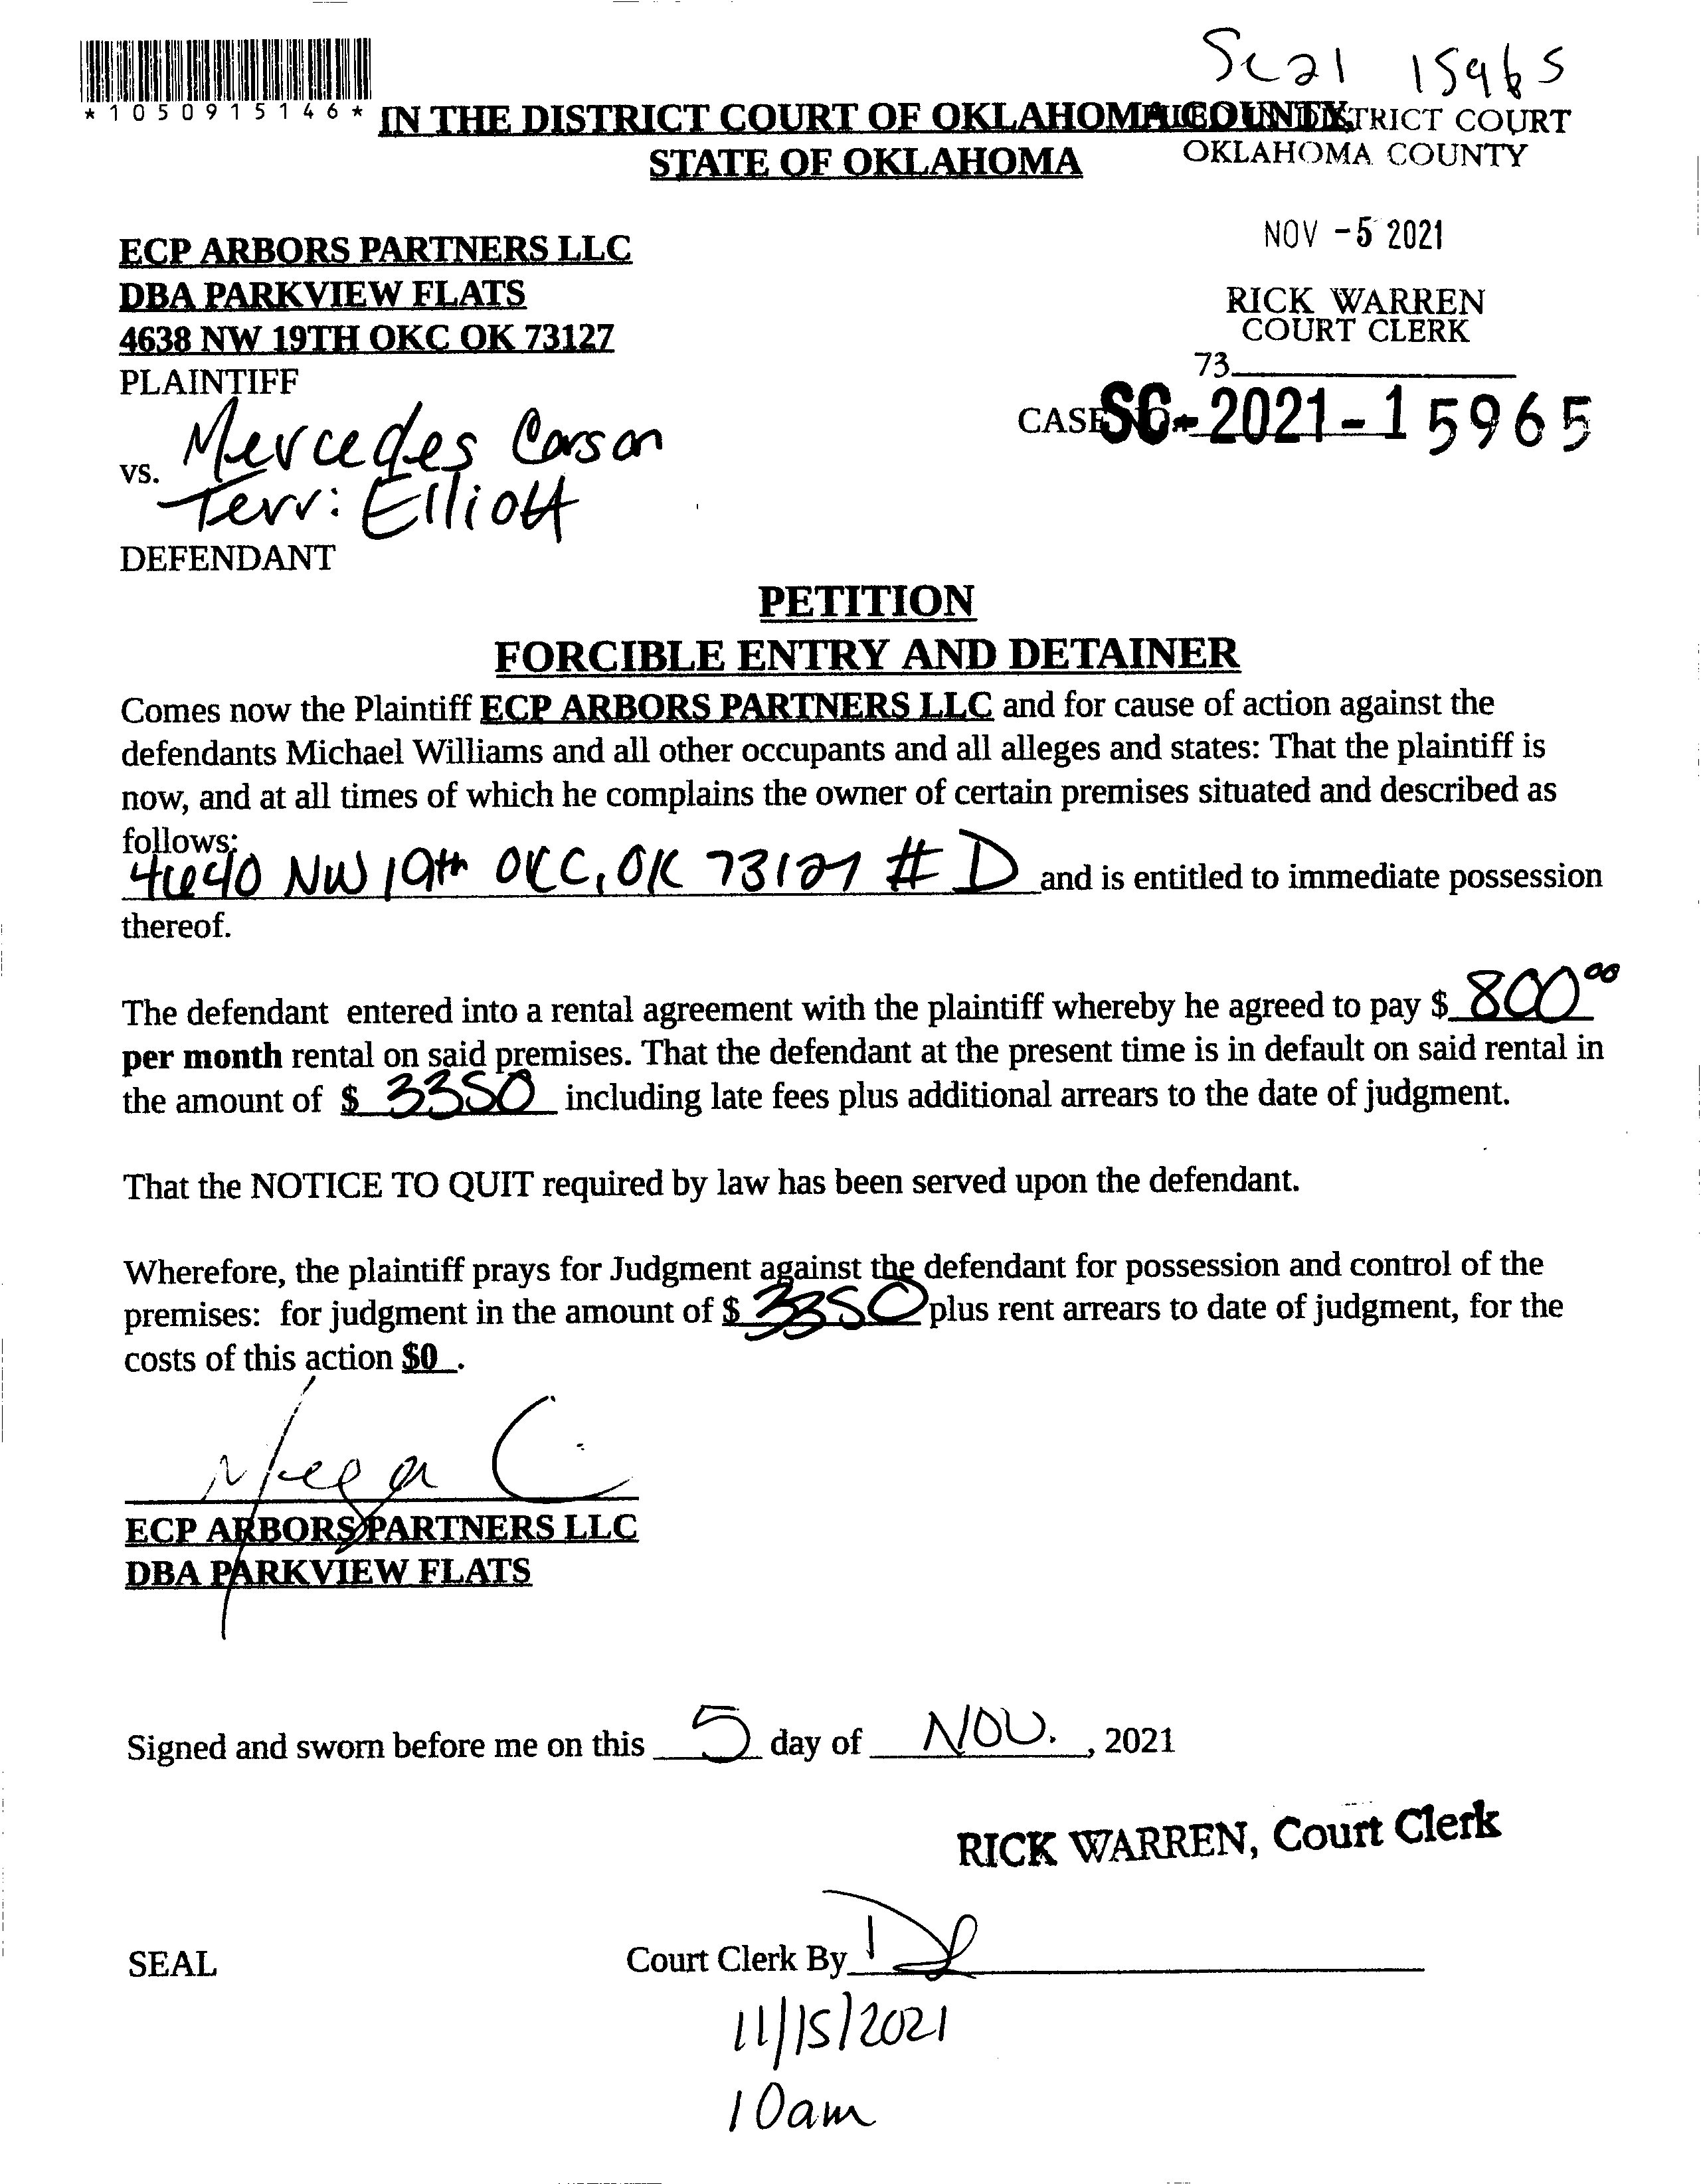 Sc21 15965
*1050915146*
IN THE DISTRICT COURT OF OKLAHOMA COUNTY,
STATE OF OKLAHOMA
FILED IN DISTRICT COURT
OKLAHOMA COUNTY
NOV -5 2021
RICK WARREN
COURT CLERK
73
ECP ARBORS PARTNERS LLC
DBA PARKVIEW FLATS
4638 NW 19TH OKC OK 73127
PLAINTIFF
CASE NO. SC-2021-15965
vs. Mercedes Carson
Terri Elliott
DEFENDANT
PETITION
FORCIBLE ENTRY AND DETAINER
Comes now the Plaintiff ECP ARBORS PARTNERS LLC and for cause of action against the
defendants Michael Williams and all other occupants and all alleges and states: That the plaintiff is
now, and at all times of which he complains the owner of certain premises situated and described as
follows:
4640 NW 19th OKC, OK 73127 # D and is entitled to immediate possession
thereof.
The defendant entered into a rental agreement with the plaintiff whereby he agreed to pay $ 800 00
per month rental on said premises. That the defendant at the present time is in default on said rental in
the amount of $ 3350 including late fees plus additional arrears to the date of judgment.
That the NOTICE TO QUIT required by law has been served upon the defendant.
Wherefore, the plaintiff prays for Judgment against the defendant for possession and control of the
premises: for judgment in the amount of $ 3350 plus rent arrears to date of judgment, for the
costs of this action $0 .
ECP ARBORS PARTNERS LLC
DBA PARKVIEW FLATS
Signed and sworn before me on this 5 day of NOV. , 2021
RICK WARREN, Court Clerk
SEAL
Court Clerk By
11/15/2021
10am